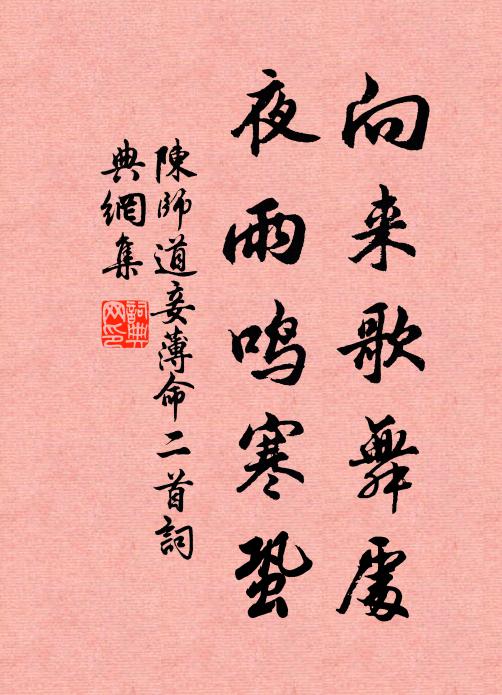 向来歌舞處
夜雨鸣寒蛩
陳師道妾薄命二首詞
典網集
詞典網印